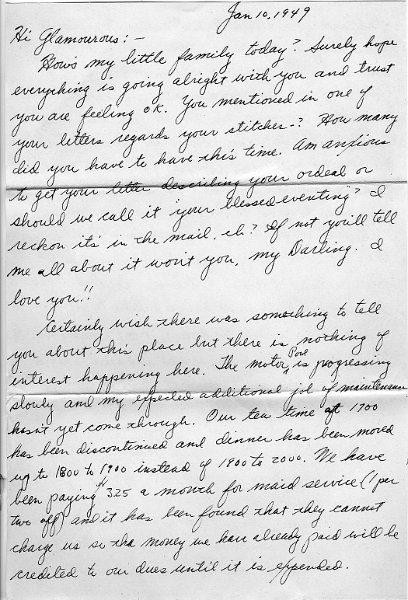 Jan 10, 1949
Hi Glamourous:-
How's my little family today? Surely hope
everything is going alright with you and trust
you are feeling OK. You mentioned in one of
your letters regards your stitches-? How many
did you have to have this time. Am anxious
to get your letter describing your ordeal or
should we call it your blessed-eventing? I
reckon it's in the mail, eh? If not you'll tell
me all about it won't you, my Darling. I
love you!!
Certainly wish there was something to tell
you about this place but there is nothing of
interest happening here. The motor Pool is progressing
slowly and my expected additional job of maintenance
hasn't yet come through. Our tea time at 1700
has been discontinued and dinner has been moved
up to 1800 to 1900 instead of 1900 to 2000. We have
been paying $3.25 a month for maid service (1 per
two off) and it has been found that they cannot
charge us so the money we have already paid will be
credited to our dues until it is expended.